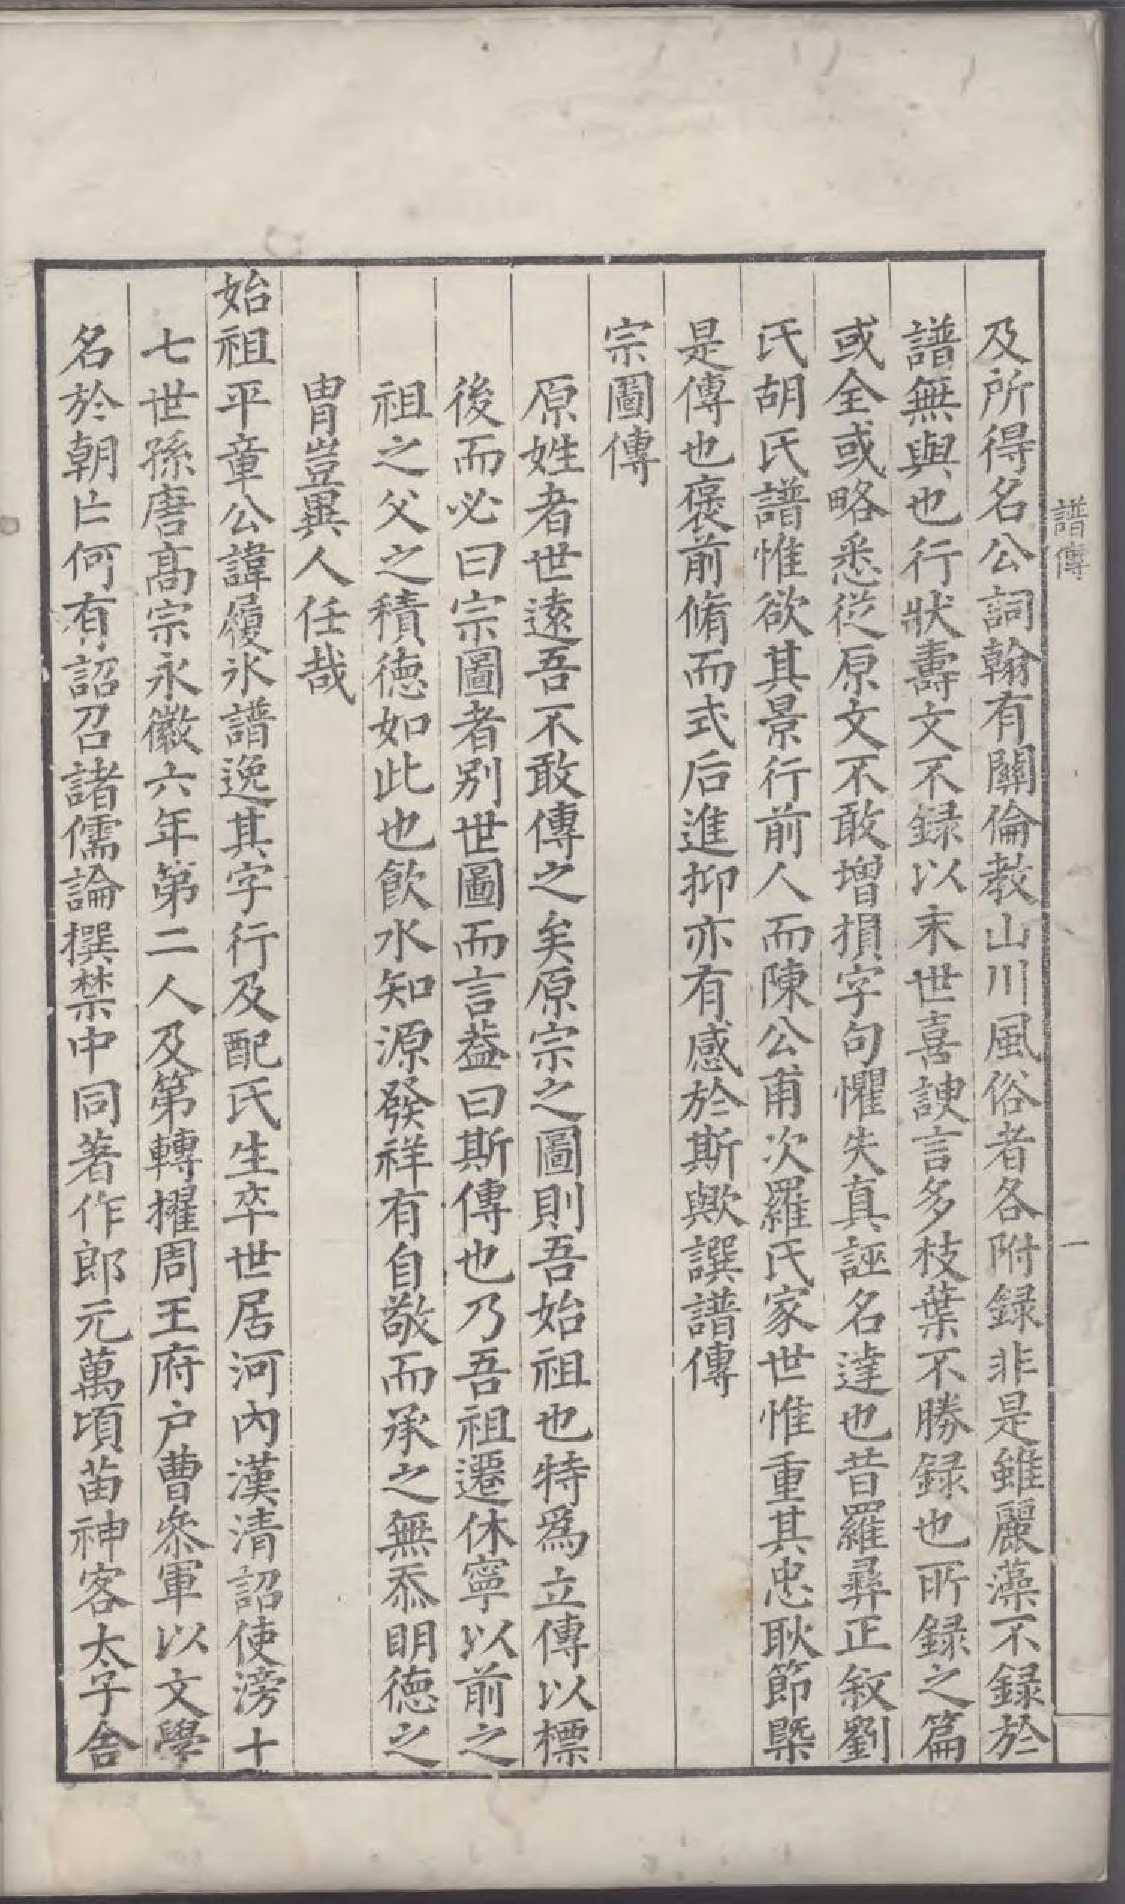 及所得名公詞翰有關倫教山川風俗者各附録非是雖麗藻不録於
譜無與也行狀壽文不録以末世喜諛言多枝葉不勝録也所録之篇
或全或略悉從原文不敢增損字句懼失真誣名達也昔羅彛正叙劉
氏胡氏譜惟欲其景行前人而陳公甫次羅氏家世惟重其忠耿節槩
是傳也褒前脩而式后進抑亦有感於斯歟譔譜傳
宗圖傳
原姓者世遠吾不敢傳之矣原宗之圖則吾始祖也特爲立傳以標
後而必曰宗圖者别世圖而言葢曰斯傳也乃吾祖遷休寧以前之
祖之父之積德如此也飲水知源發祥有自敬而承之無忝明德之
胄豈異人任哉
始祖平章公諱履氷譜逸其字行及配氏生卒世居河內漢清詔使滂十
七世孫唐髙宗永徽六年第二人及第轉擢周王府户曹叅軍以文學
名於朝亡何有詔召諸儒論撰禁中同著作郎元萬頃苗神客太子舎
譜傳
一